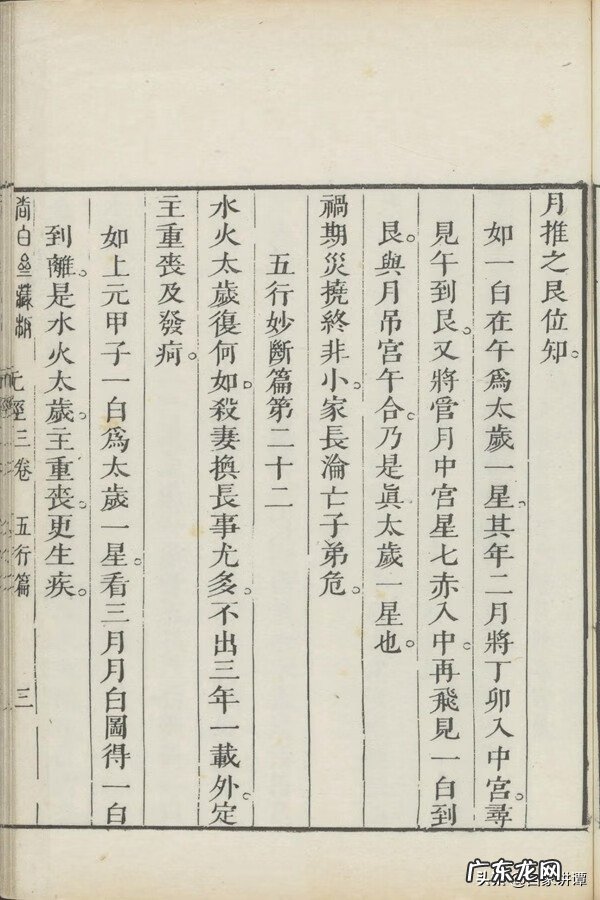 月推之艮位知。
如一白在午爲太歲一星。其年二月將丁卯入中宮。尋
見午到艮。又將管月中宮星七赤入中。再飛見一白到
艮。與月吊宮午合。乃是眞太歲一星也。
禍期災撓終非小。家長淪亡子弟危。
五行妙斷篇第二十二
水火太歲復何如。殺妻換長事尤多。不出三年一載外。定
主重喪及發疴。
如上元甲子一白爲太歲一星。看三月月白圖得一白
到離。是水火太歲。主重喪。更生疾。
尚白齋藏板 元經三卷 五行篇 三
广东龙网
头条 @百家讲谭